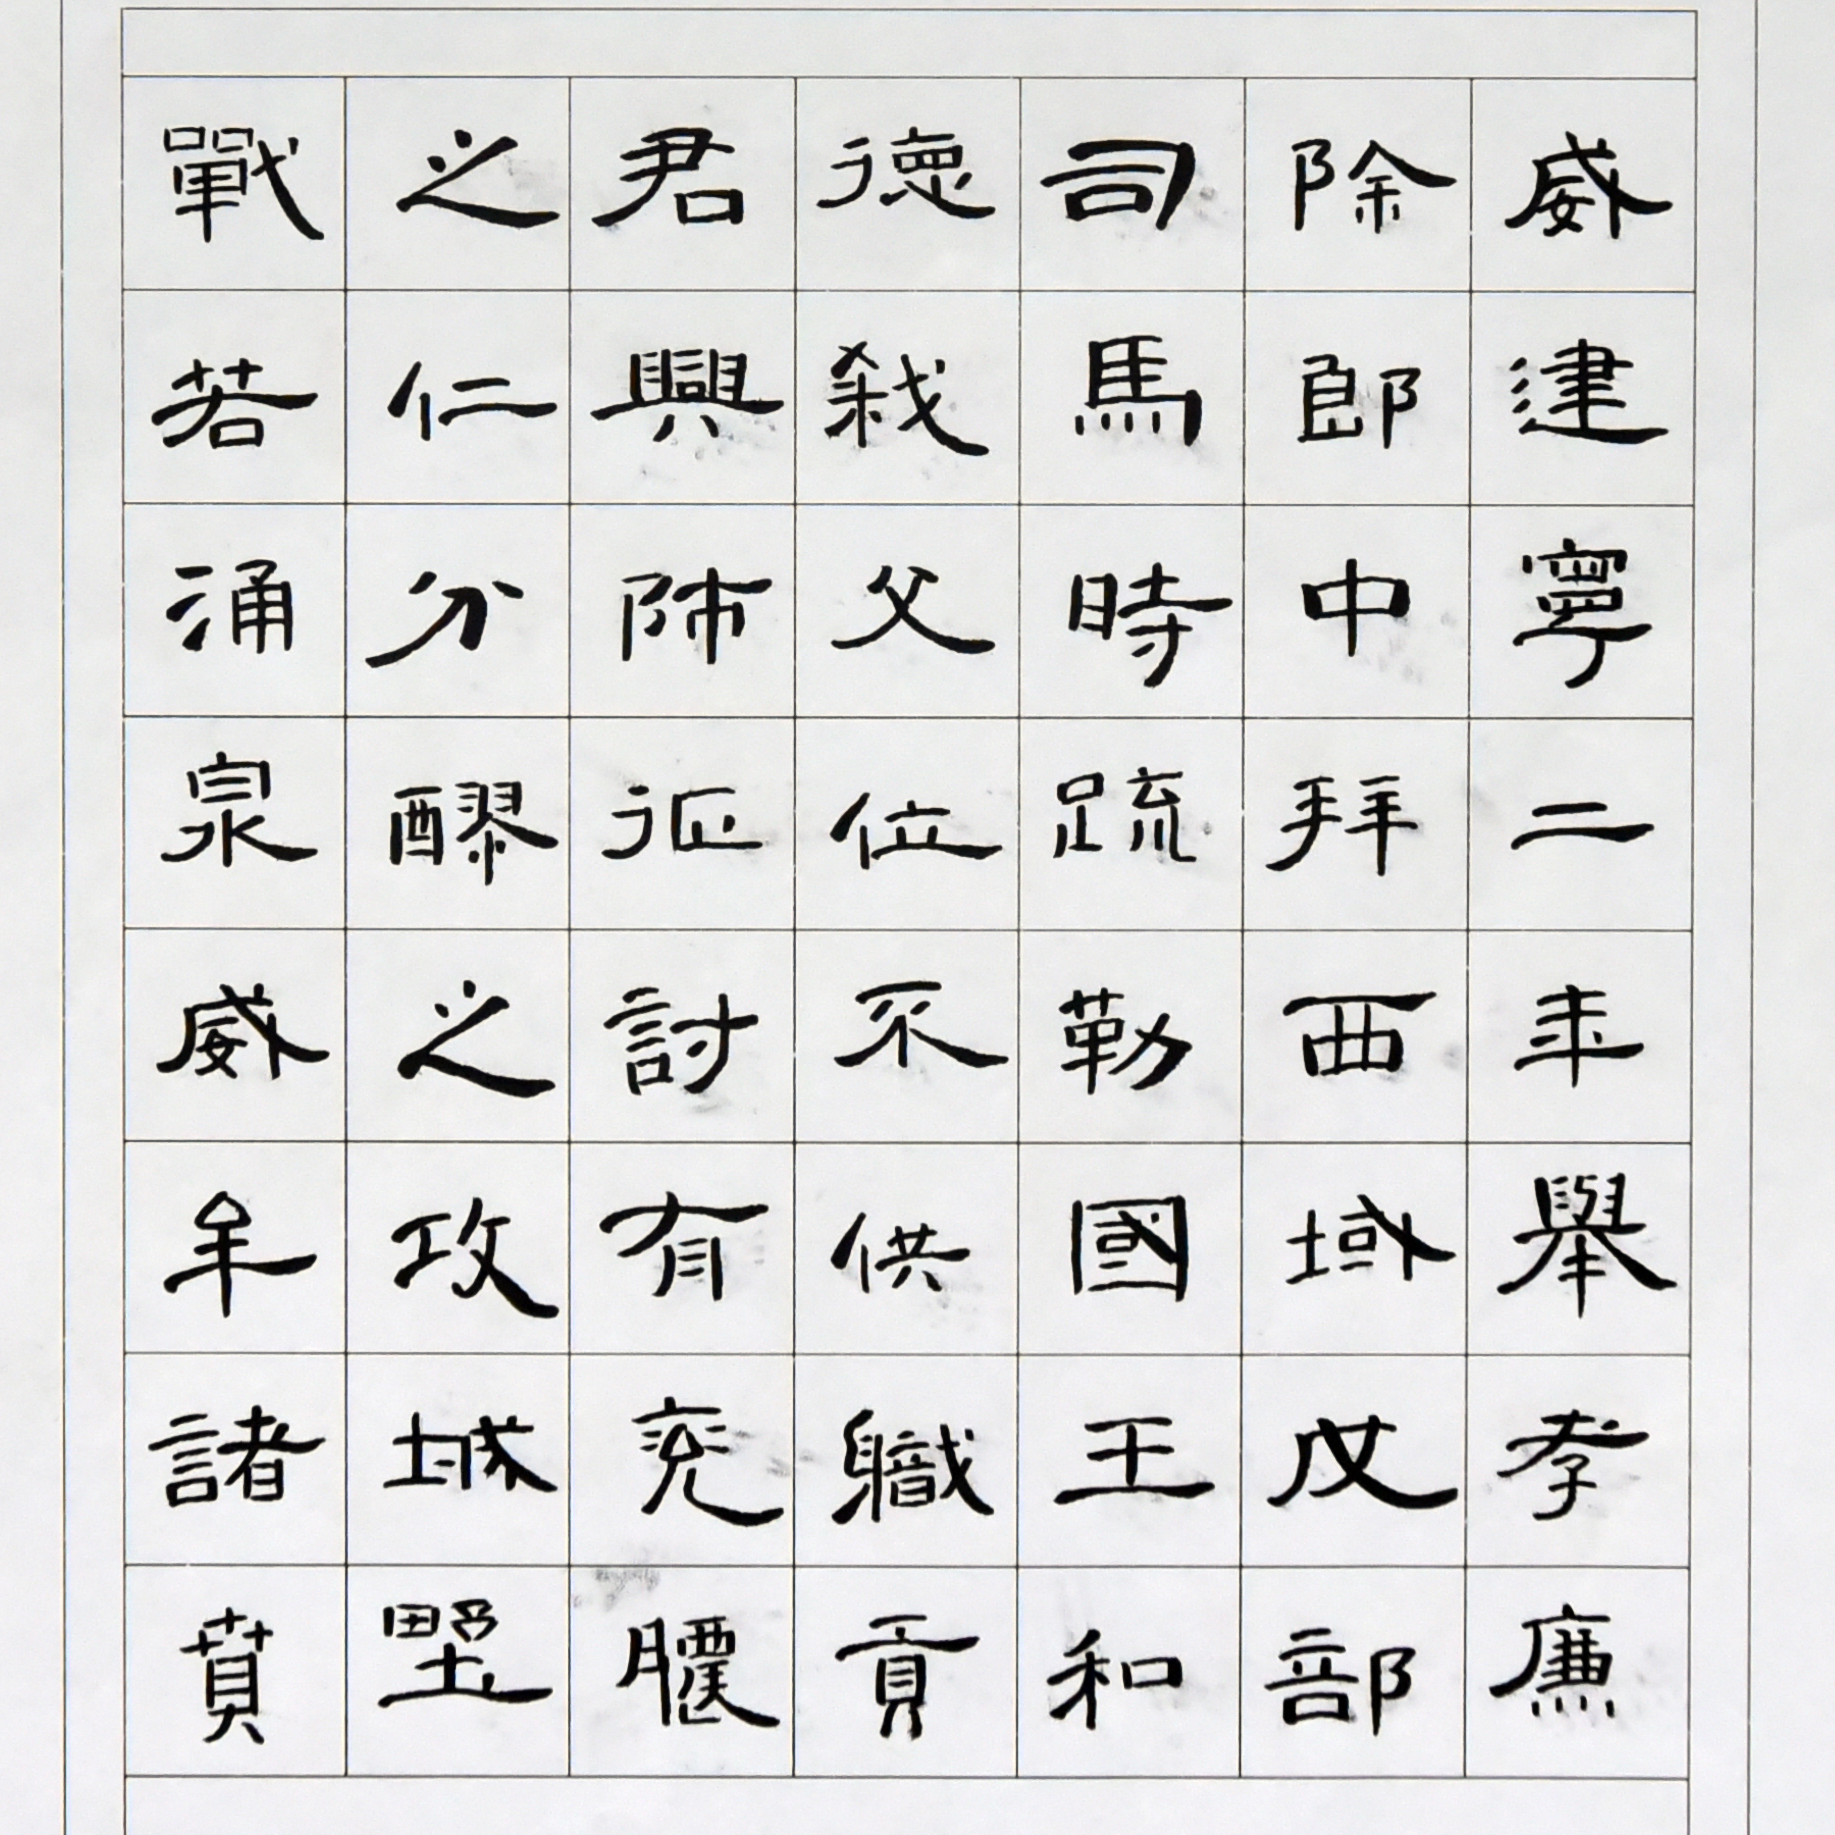 威建寧二年舉孝廉
除郎中拜西域戊部
司馬時疏勒國王和
德弒父位不供職貢
君興師征討有兗膿
之仁分醪之攻城野
戰若涌泉威牟諸賁